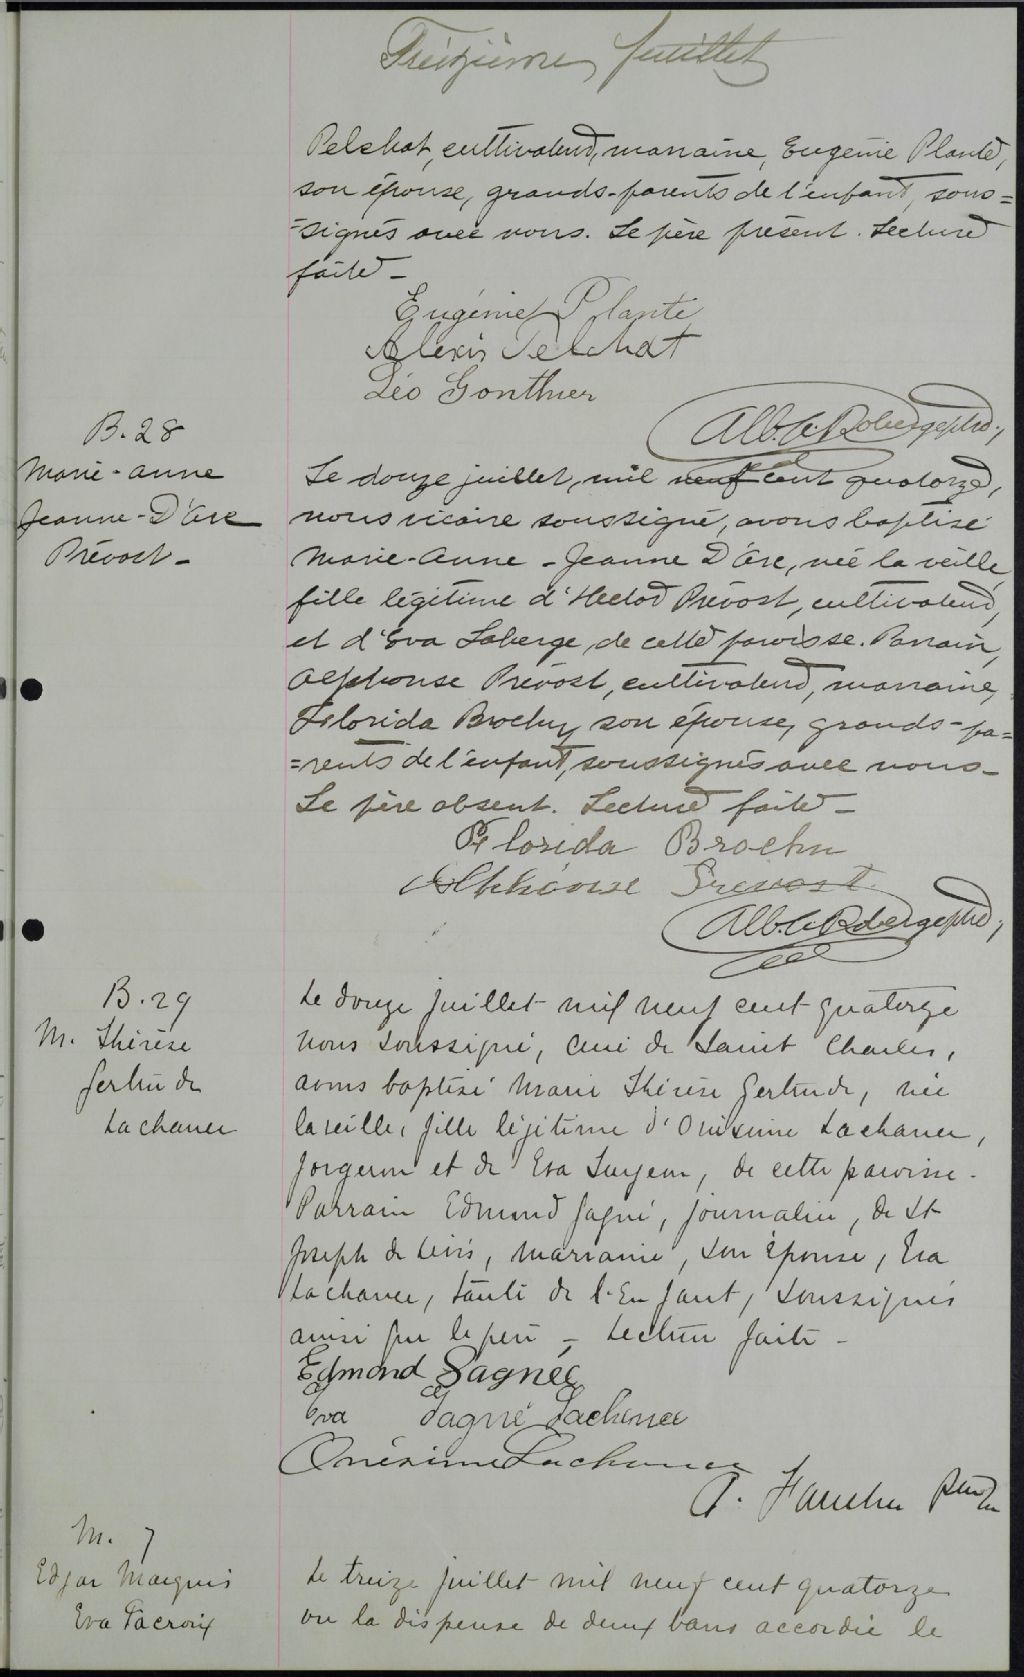 Treizième feuillet
Pelchat, cultivateur, marraine, Eugénie Plante,
son épouse, grands-parents de l'enfant, sous=
=signés avec nous. Le père présent. Lecture
faite -
Eugénie Plante
Alexis Pelchat
Léo Gonthier
Alb. C. Roberge ptre.,
B. 28
Marie-Anne
Jeanne-D'Arc
Prévost -
Le douze juillet, mil neuf cent quatorze,
nous vicaire soussigné, avons baptisé
Marie-Anne - Jeanne D'Arc, née la veille,
fille légitime d'Hector Prévost, cultivateur,
et d'Eva Laberge de cette paroisse. Parrain,
Alphonse Prévost, cultivateur, marraine,
Florida Brochu, son épouse, grands-pa=
=rents de l'enfant, soussignés avec nous -
Le père absent. Lecture faite -
Florida Brochu
Alphonse Prevost
Alb. C. Roberge ptre.,
B. 29
M. Thérèse
Gertrude
Lachance
Le douze juillet mil neuf cent quatorze
nous soussigné, curé de Saint Charles,
avons baptisé Marie Thérèse Gertrude, née
la veille, fille légitime d'Onésime Lachance,
forgeron et de Eva Turgeon, de cette paroisse -
Parrain Edmond Gagné, journalier, de St
Joseph de Lévis, marraine, son épouse, Eva
Lachance, tante de l'Enfant, soussignés
ainsi que le père - Lecture faite -
Edmond Gagnée
Eva Gagné Lachance
Onésime Lachance
A. Faucher
M. 7
Edgar Marquis
Eva Lacroix
Le treize juillet mil neuf cent quatorze
vu la dispense de deux bans accordée le